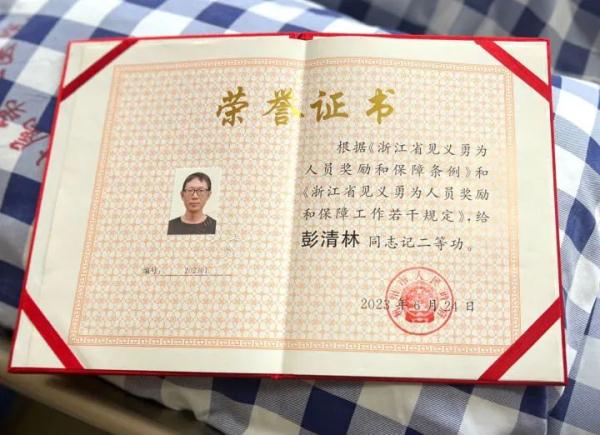 荣誉证书
根据《浙江省见义勇为
人员奖励和保障条例》和
《浙江省见义勇为人员奖励
和保障工作若干规定》，给
彭清林 同志记二等功。
编号：
2023年6月24日